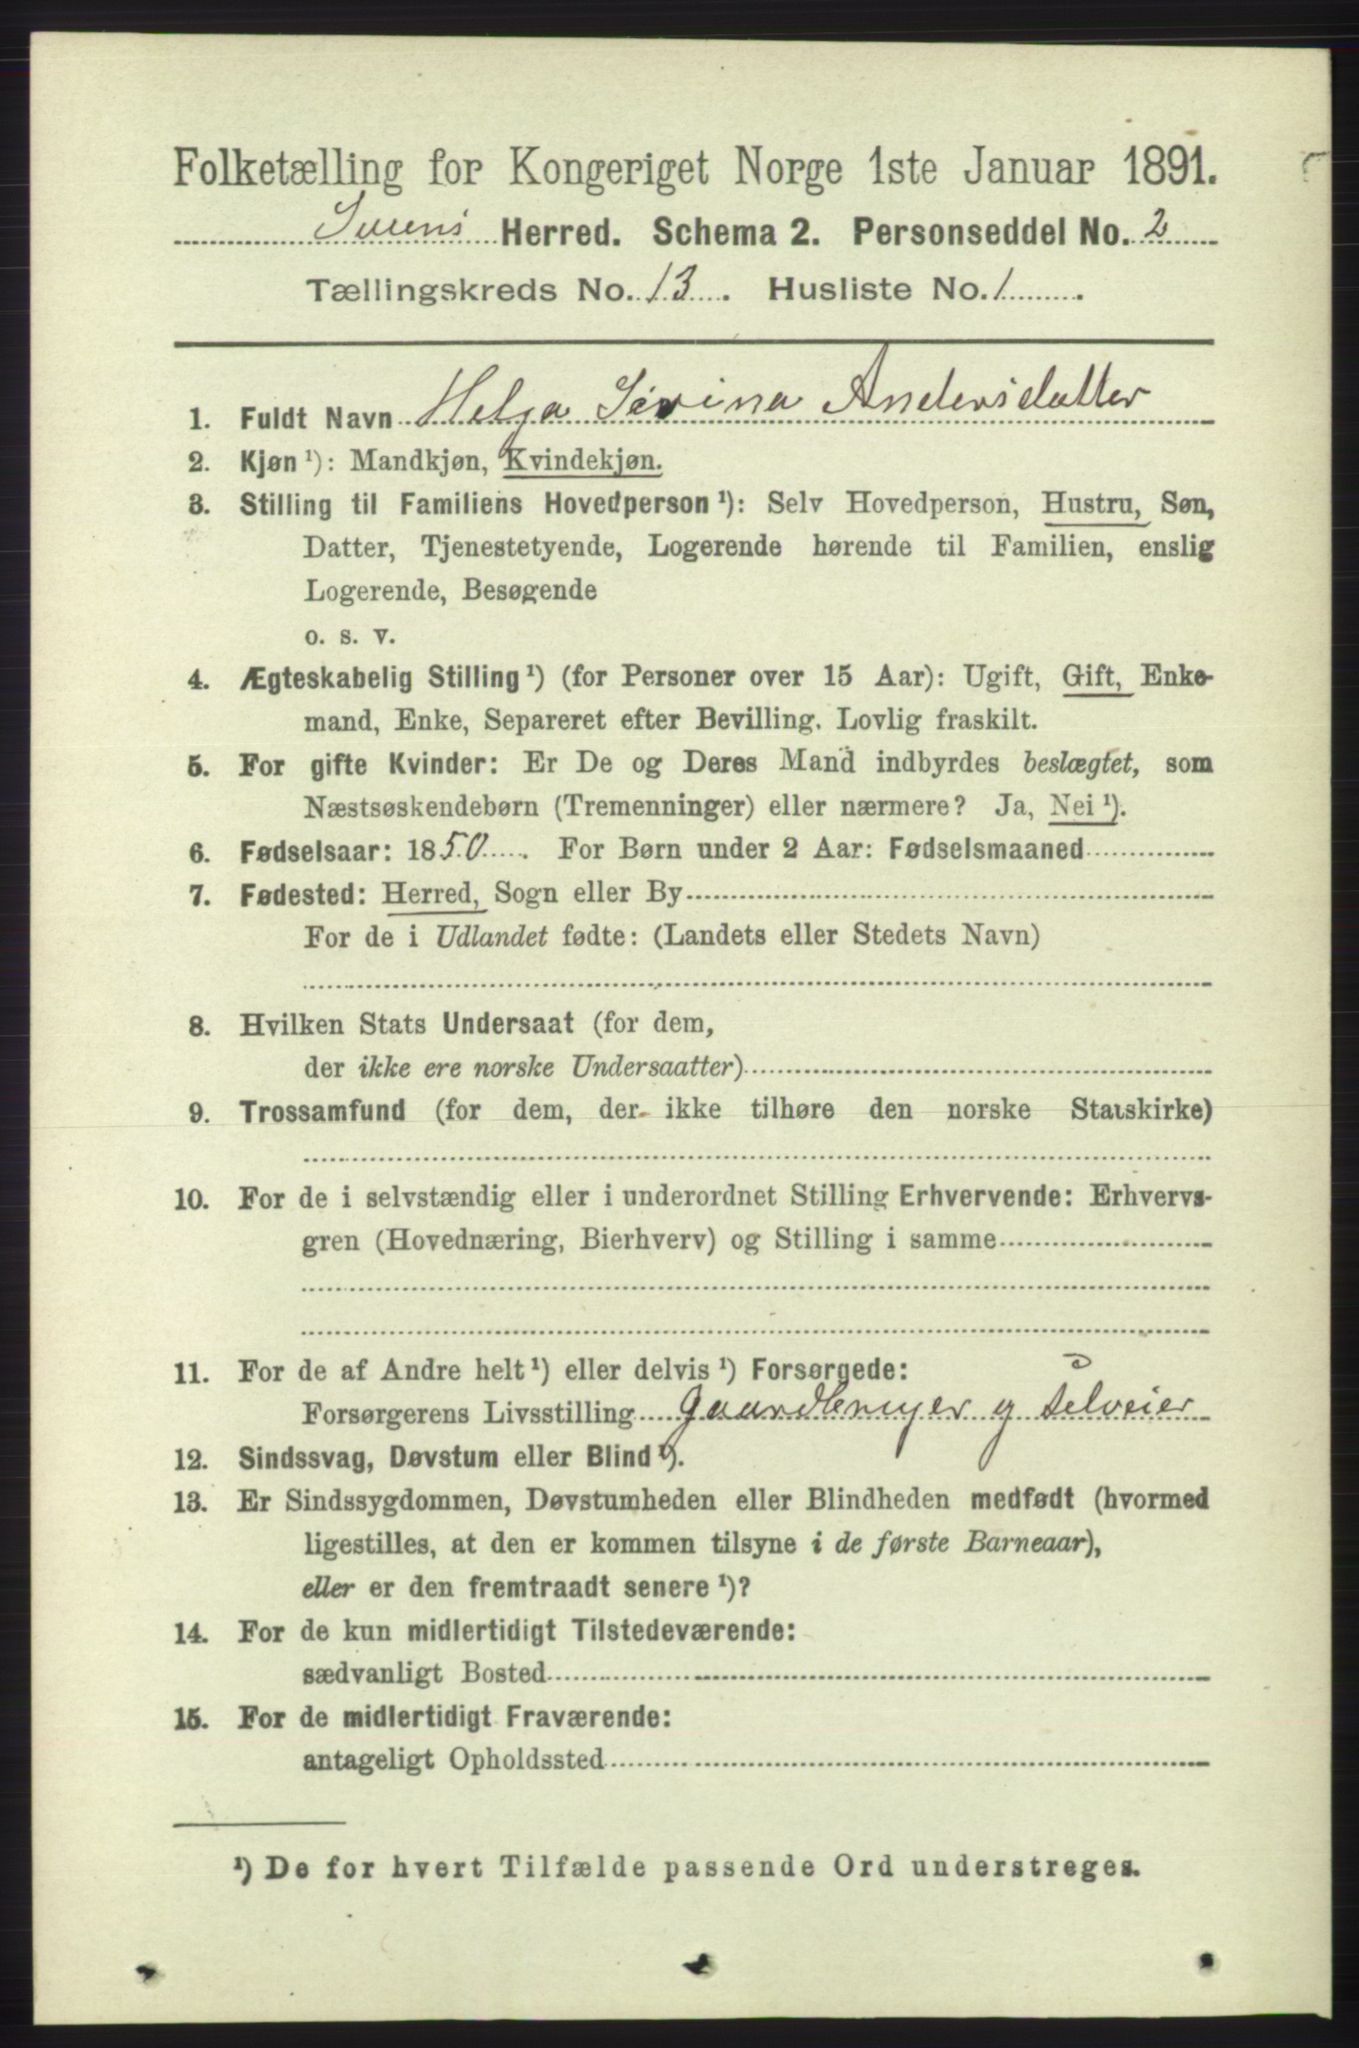 Folketælling for Kongeriget Norge 1ste Januar 1891.
Herred. Schema 2. Personseddel No. 2
Tællingskreds No. 13. Husliste No. 1.
1. Fuldt Navn Helga Sivrina Andersdatter
2. Kjøn ¹): Mandkjøn, Kvindekjøn.
3. Stilling til Familiens Hovedperson ¹): Selv Hovedperson, Hustru, Søn,
Datter, Tjenestetyende, Logerende hørende til Familien, enslig
Logerende, Besøgende
o. s. v.
4. Ægteskabelig Stilling ¹) (for Personer over 15 Aar): Ugift, Gift, Enke-
mand, Enke, Separeret efter Bevilling. Lovlig fraskilt.
5. For gifte Kvinder: Er De og Deres Mand indbyrdes beslægtet, som
Næstsøskendebørn (Tremenninger) eller nærmere? Ja, Nei ¹).
6. Fødselsaar: 1850. For Børn under 2 Aar: Fødselsmaaned
7. Fødested: Herred, Sogn eller By
For de i Udlandet fødte: (Landets eller Stedets Navn)
8. Hvilken Stats Undersaat (for dem,
der ikke ere norske Undersaatter)
9. Trossamfund (for dem, der ikke tilhøre den norske Statskirke)
10. For de i selvstændig eller i underordnet Stilling Erhvervende: Erhvervs-
gren (Hovednæring, Bierhverv) og Stilling i samme
11. For de af Andre helt ¹) eller delvis ¹) Forsørgede:
Forsørgerens Livsstilling Gaardbruger og selveier
12. Sindssvag, Døvstum eller Blind ¹).
13. Er Sindssygdommen, Døvstumheden eller Blindheden medfødt (hvormed
ligestilles, at den er kommen tilsyne i de første Barneaar),
eller er den fremtraadt senere ¹)?
14. For de kun midlertidigt Tilstedeværende:
sædvanligt Bosted
15. For de midlertidigt Fraværende:
antageligt Opholdssted
¹) De for hvert Tilfælde passende Ord understreges.